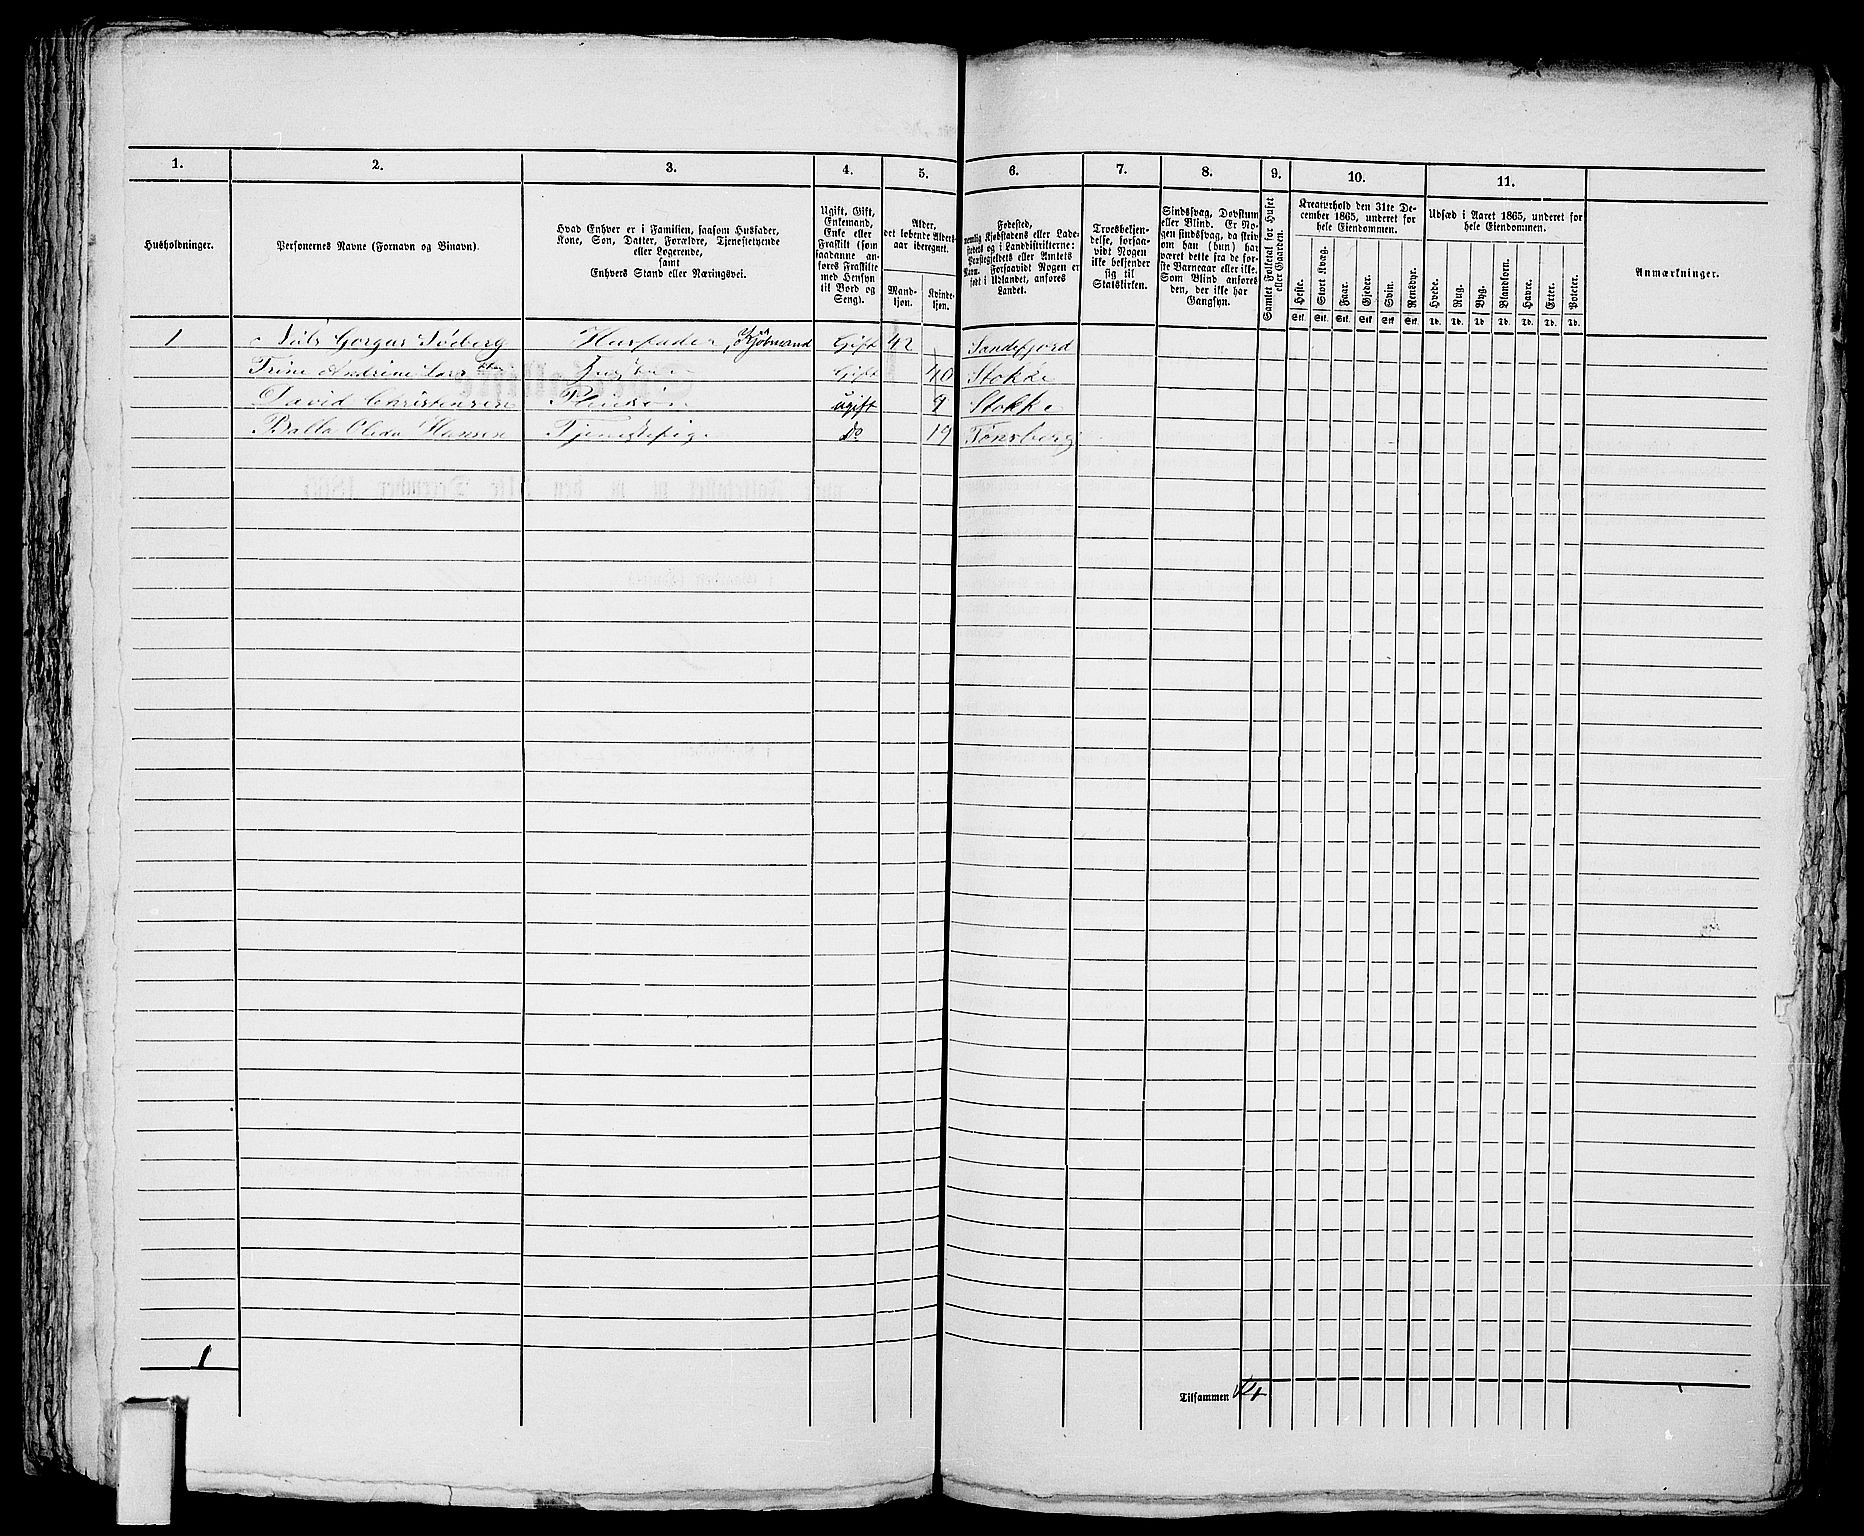 1. 2. 3. 4. 5. 6. 7. 8. 9. 10. 11.
Husholdninger.
Personernes Navne (Fornavn og Binavn).
Hvad Enhver er i Familien, saasom Husfader,
Kone, Søn, Datter, Forældre, Tjenestetyende
eller Logerende,
samt
Enhvers Stand eller Næringsvei.
Ugift, Gift,
Enkemand,
Enke eller
Fraskilt (som
saadanne an-
føres Fraskilte
med Hensyn
til Bord og
Seng).
Alder,
det løbende Alders-
aar iberegnet.
Mand-
kjøn.
Kvinde-
kjøn.
Fødested,
nemlig Kjøbstadens eller Lade-
stedets og i Landdistrikterne:
Præstegjeldets eller Amtets
Navn. Forsaavidt Nogen er
født i Udlandet, anføres
Landet.
Troesbekjen-
delse, forsaa-
vidt Nogen
ikke bekjender
sig til
Statskirken.
Sindssvag, Døvstum
eller Blind. Er No-
gen sindssvag, da skriv
om han (hun) har
været dette fra de for-
ste Barneaar eller ikke.
Som Blind anføres
den, der ikke har
Gangsyn.
Samlet Folketal for Huset
eller Gaarden.
Kreaturhold den 31te De-
cember 1865, underet for
hele Eiendommen.
Heste. Stort Kvæg. Faar. Gjeder. Svin. Rensdyr.
Stk. Stk. Stk. Stk. Stk. Stk.
Udsæd i Aaret 1865, underet for
hele Eiendommen.
Hvede. Rug. Byg. Blandkorn. Havre. Erter. Poteter.
Td. Td. Td. Td. Td. Td. Td.
Anmærkninger.
1 Gorgus Søeberg Husfader, Kjøbmand Gift 42 Sandefjord
Trine Andrine Gift 40 Stokke
David Christensen Pleiesøn ugift 9 Stokke
Hansen Tjenestepige do 19 Tønsberg
1
Tilsammen 4